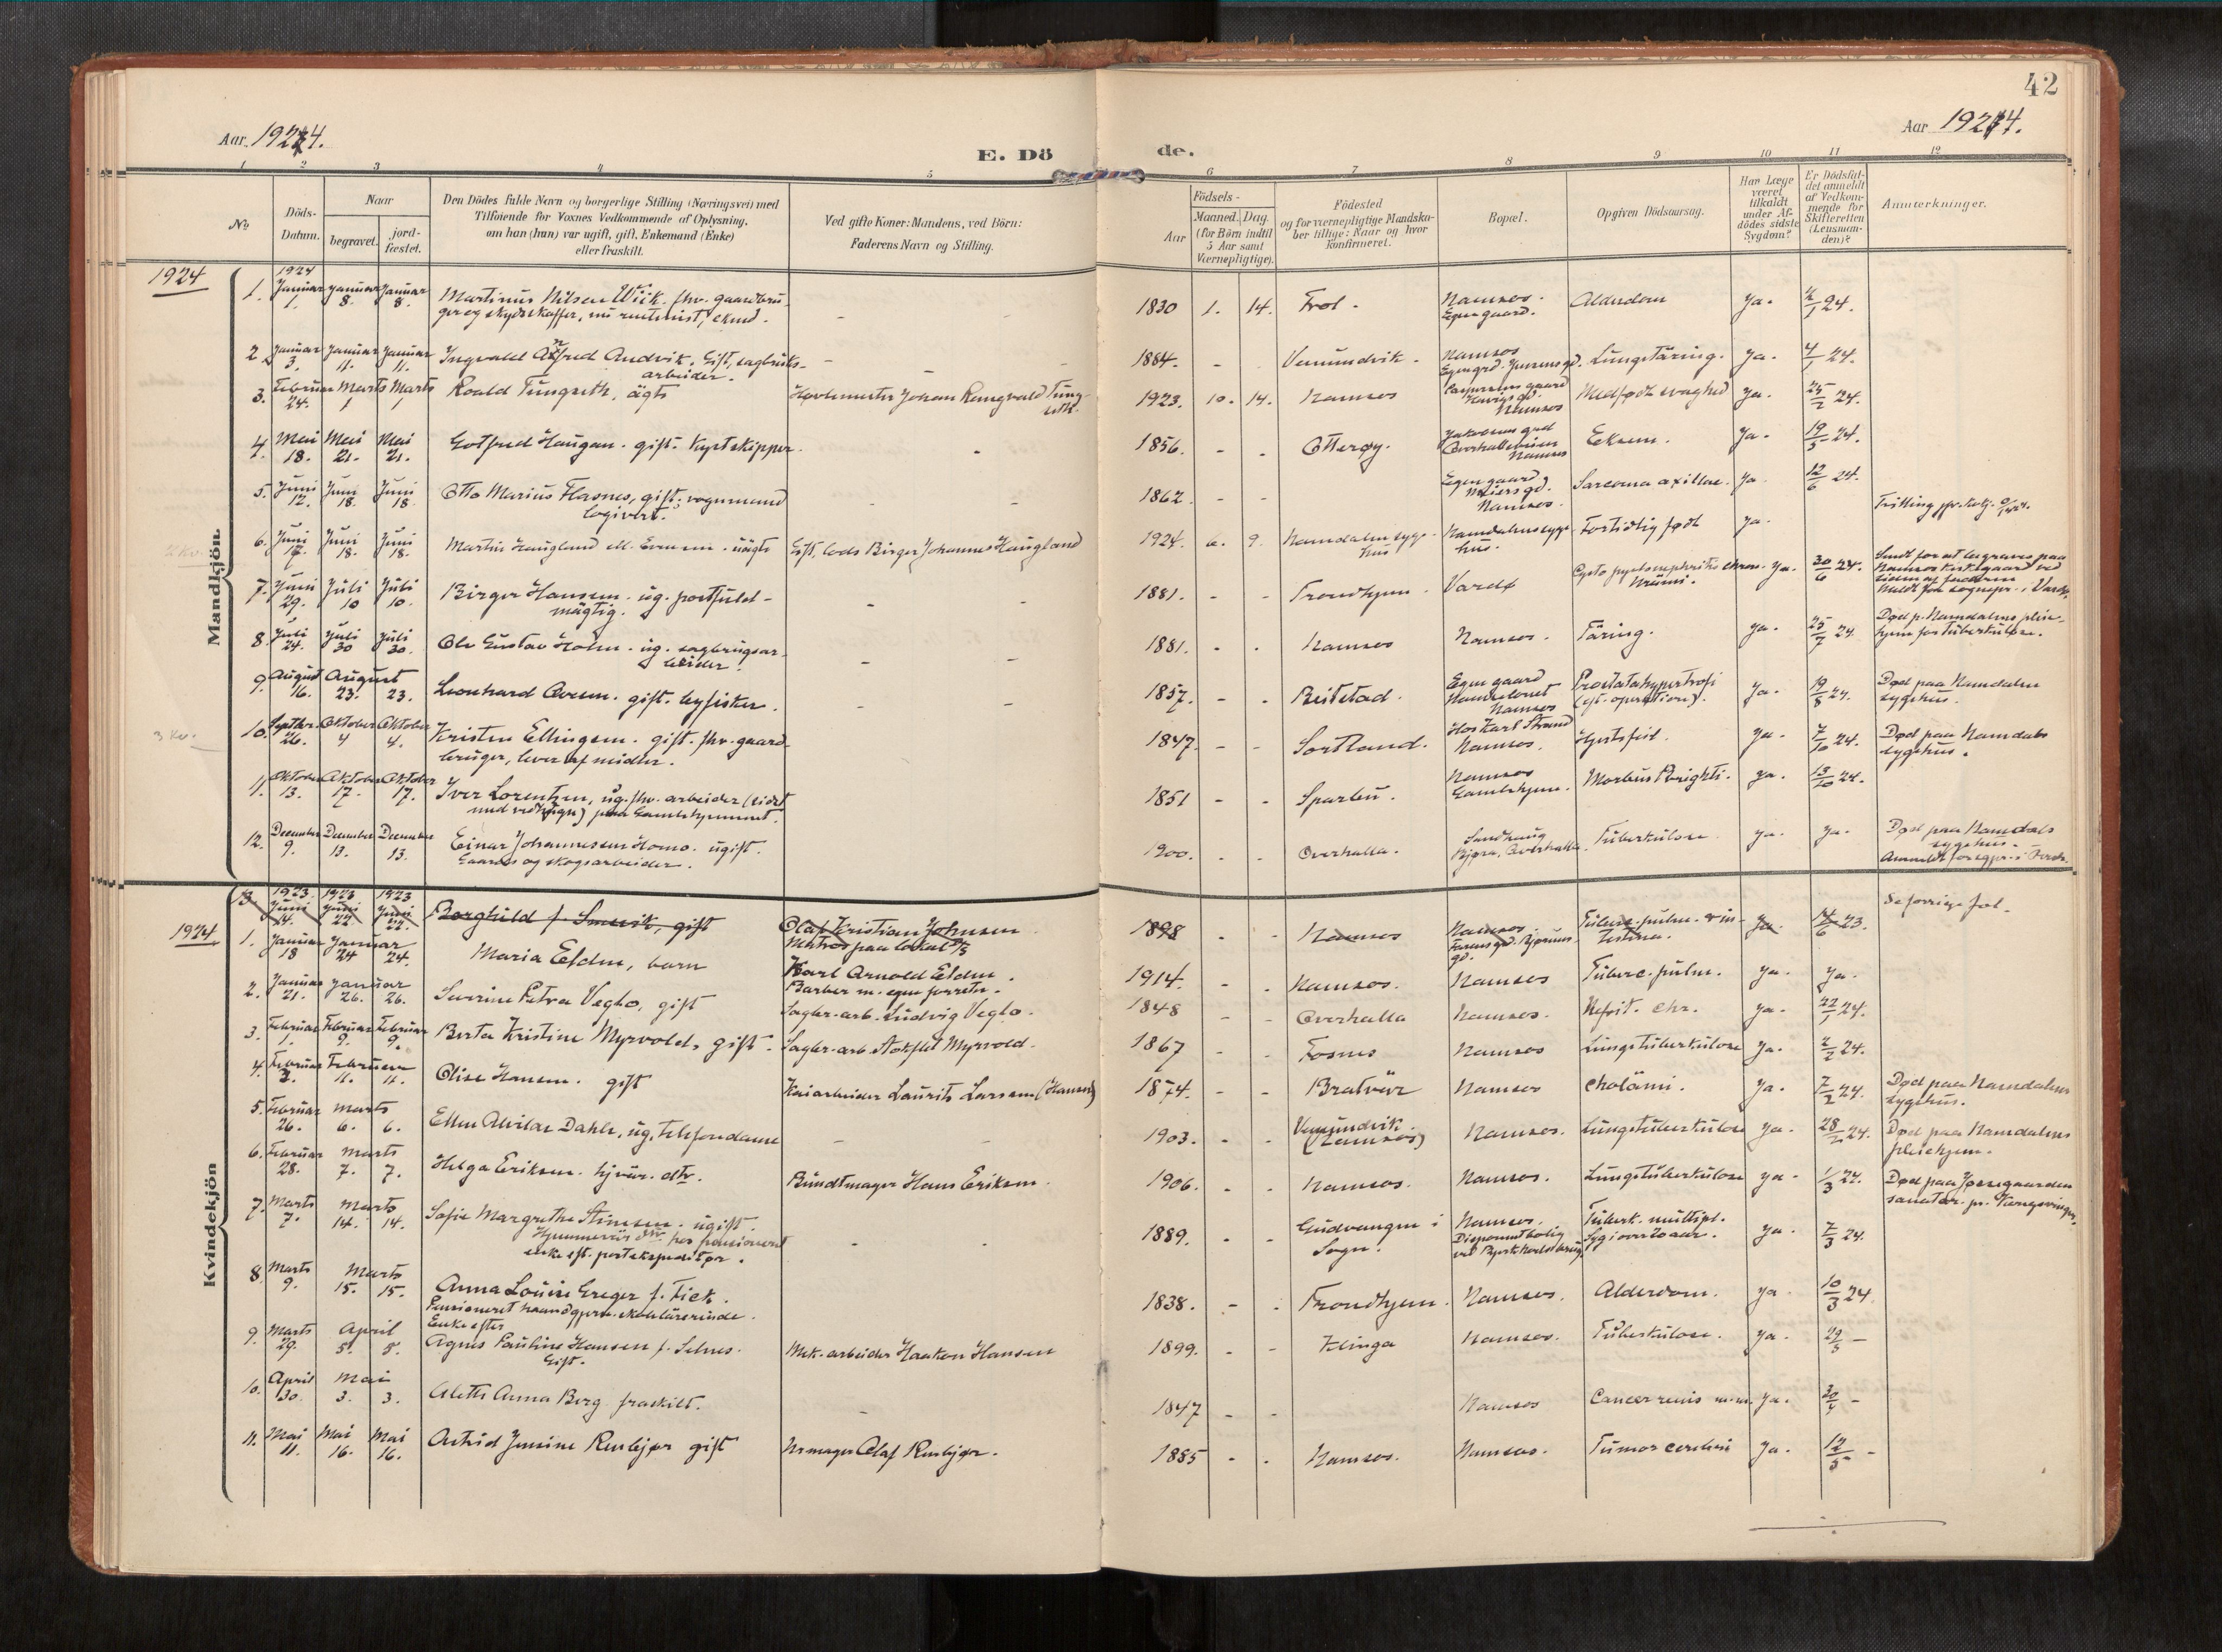 42
Aar 1924.
Aar 1924.
E. Dö
de.
1 2 3 4 5
6 7 8 9 10 11 12
No
Döds-
Datum.
Naar
begravet.
jord-
fæstet.
Den Dödes fulde Navn og borgerlige Stilling (Næringsvei) med
Tilföiende for Voxnes Vedkommende af Oplysning,
om han (hun) var ugift, gift, Enkemand (Enke)
eller fraskilt.
Ved gifte Koner: Mandens, ved Börn:
Faderens Navn og Stilling.
Födsels-
Aar
Maaned. Dag.
(for Börn indtil
5 Aar samt
Værnepligtige).
Födested
og for værnepligtige Mandska-
ber tillige: Naar og hvor
konfirmeret.
Bopæl.
Opgiven Dödsaarsag.
Har Læge
været
tilkaldt
under Af-
dödes sidste
Sygdom?
Er Dödsfal-
det anmeldt
af Vedkom-
mende for
Skifteretten
(Lensman-
den)?
Anmærkninger.
Mandkjön.
1924
1924
1. Januar 1. Januar 8. Januar 8. Martinus Nilsen Wiik. fhv. gaardbru-
ger og skydsskaffer, nu rentenist, ekmd. - 1830 1. 14. Frol - Namsos. Egen gaard. Alderdom ja. 2/1 24.
2. Januar 3. Januar 11. Januar 11. Ingvald Alfred Andvik. Gift, sagbruks-
arbeider. - 1884. - Vemundvik - Namsos Lungetäring. ja. 4/1 24.
3. Februar 24. Marts 1 Marts 1 Roald Tungseth, ägte Johan Reingvald Tung-
seth. 1923. 10. 14. Namsos Namsos Medfødt svaghed ja. 25/2 24.
4. Mai 18. Mai 21. Mai 21. Gotfred Haugan. gift. Kystskipper. - 1856. - - Otterøy. Namsos Eksem. ja. 19/5 24.
5. Juni 12. Juni 18. Juni 18. Otto Marius Flasnes, gift. vognmand
logivert. 1862. - - Egen gaard Namsos. Sarcoma axillae. ja. 12/6 24.
6. Juni 17. Juni 18. Juni 18. Martin Haugland uägte Gift, lods Birger Johannes Haugland 1924. 6. 9. Namdalens syge-
hus Namdalens syge-
hus. Fortidlig født ja.
7. Juni 29. Juli 10 Juli 10. Birger Hansen. ug. postfuld-
mägtig. - 1881. - - Trondhjem. Vardø ja. 30/6 24.
8. Juli 24. Juli 30 Juli 30. Ole Gustav Holm. ug. sagbrugsar-
beider. - 1881. - - Namsos Namsos. Täring. ja. 25/7 24. Død p. Namdalens pleie-
hjem for Tuberkuløse.
9. August 16. August 23. 23. Leonhard Oveson. gift. byfisker. - 1857. - - Beitstad. Egen gaard Namsos Prostatahypertrofi
ja. 19/8 24. Død paa Namdalen
sygehus.
10. Septbr. 26. Oktober 4 Oktober 4. Kristen Ellingsen. gift. fhv. gaard-
bruger, lever af midler. 1847. - - Sortland. Hos Karl Strand
Namsos. Hjertefeil. ja. 7/10 24. Død paa Namdals
sygehus.
11. Oktober 13. Oktober 17. Oktober 17. Iver Lorentzen, ug. fhv. arbeider
paa Gamlehjemmet. 1851 - - Sparbu. Namsos
Gamlehjem. Morbus Brighti. ja. 13/10 24.
12. December 9. December 13. December 13. Einar Johannesen Homo. ugift.
Gaards og skogsarbeider. 1900. - - Overhalla. Overhalla. Tuberkulose ja. ja. Død paa Namdals
sygehus.
Kvindekjön
1924
13. 1923 Juni 14. 1923 Juni 22. 1923 Juni 22. Borghild f. Smevik, gift Olaf Kristian Johnsen
1898 - - Namsos Namsos ja 14/6 23. Se forrige fol.
1. Januar 18 Januar 24 24. Maria Elden, barn Karl Arnold Elden.
Barber m. egen forretn. 1914. - - Namsos. Namsos Tuberc. pulm. ja. ja.
2. Januar 21. Januar 26. 26. Severine Petra Veglo, gift Sagbr. arb. Ludvig Veglo. 1848 - - Overhalla Namsos. Nefrit. chr. ja. 22/1 24.
3. Februar 1. Februar 9. Februar 9. Berta Kristine Myrvold, gift. Sagbr-arb. Myrvold. 1867 - - Fosnes Namsos Lungetuberkulose ja. 2/2 24.
4. Februar 2. Februar 11. 11. Olise Hansen. gift Kaiarbeider Laurits Larsen (Hansen) 1874. - - Bratvär Namsos Cholämi. ja. 7/2 24. Død paa Namdalens
sygehus.
5. Februar 26. Marts 6. 6. Ellen Alvilde Dahle, ug. Telefondame - 1903. - - Vemundvik.
(Namsos) Namsos. Lungetuberkulose ja. 28/2 24. Død paa Namdalens
pleiehjem.
6. Februar 28. Marts 7. 7. Helga Eriksen. hjvär. dtr. Bundtmager Hans Eriksen. 1906. - - Namsos. Namsos. Lungetuberkulose ja - 1/3 24. Død paa
sanator. pr. Kongsvinger.
7. Marts 7. Marts 14. 14. Sofie Margrethe Stimsen. ugift.
enke eft. postekspeditør. - 1889. - - Gudvangen i
Sogn. Namsos. Tuberk. multipl.
Syg i over 20 aar. ja. 7/3 24.
8. Marts 9. Marts 15. 15. Anna Louise Greger f. Fick.
Pensioneret haandgjern. skolelärerinde.
Enke efter 1838. - - Trondhjem. Namsos. Alderdom. ja. 10/3 24
9. Marts 29. April 5. 5. Agnes Pauline Hansen f. Selnes.
Gift. Mek. arbeider Haakon Hansen 1899. - - Klinga Namsos. Tuberkulose. ja. 29/3 -
10. April 30. Mai 3. 3. Aleth Anna Berg fraskilt. - 1847 - - Namsos Cancer renis ja. 30/4 -
11. Mai 11. Mai 16. Mai 16. Astrid Jensine Renbjør gift Urmager Olaf Renbjør. 1885 - - Namsos. Namsos. Tumor cerebri ja. 12/5 -